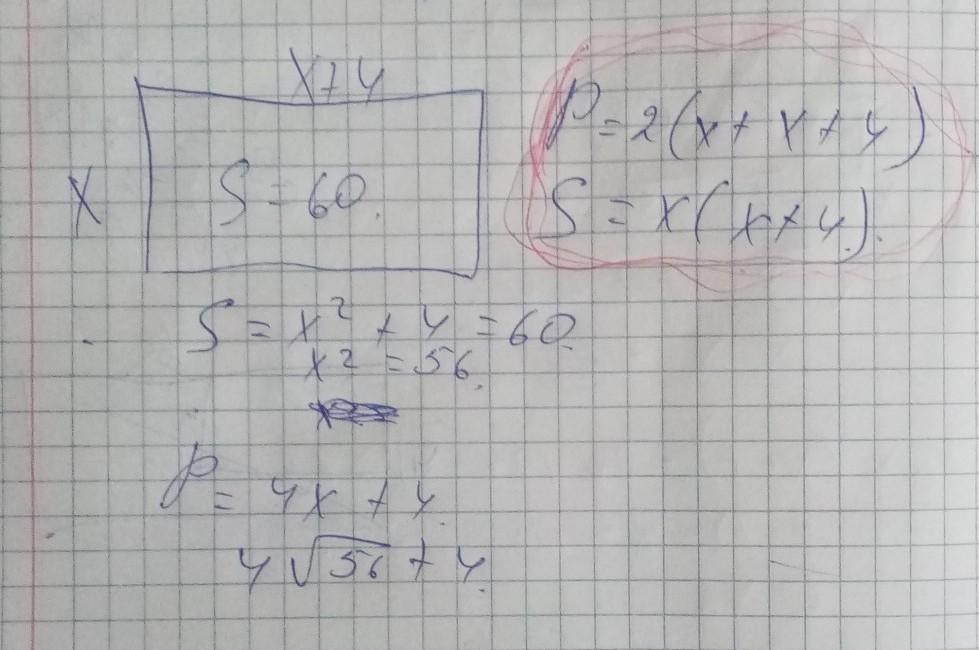 x+4
x
S = 60.
P = 2(x + x + 4)
S = x(x+4).
S = x² + 4 = 60.
x² = 56.
P = 4x + 4.
4√56 + 4.